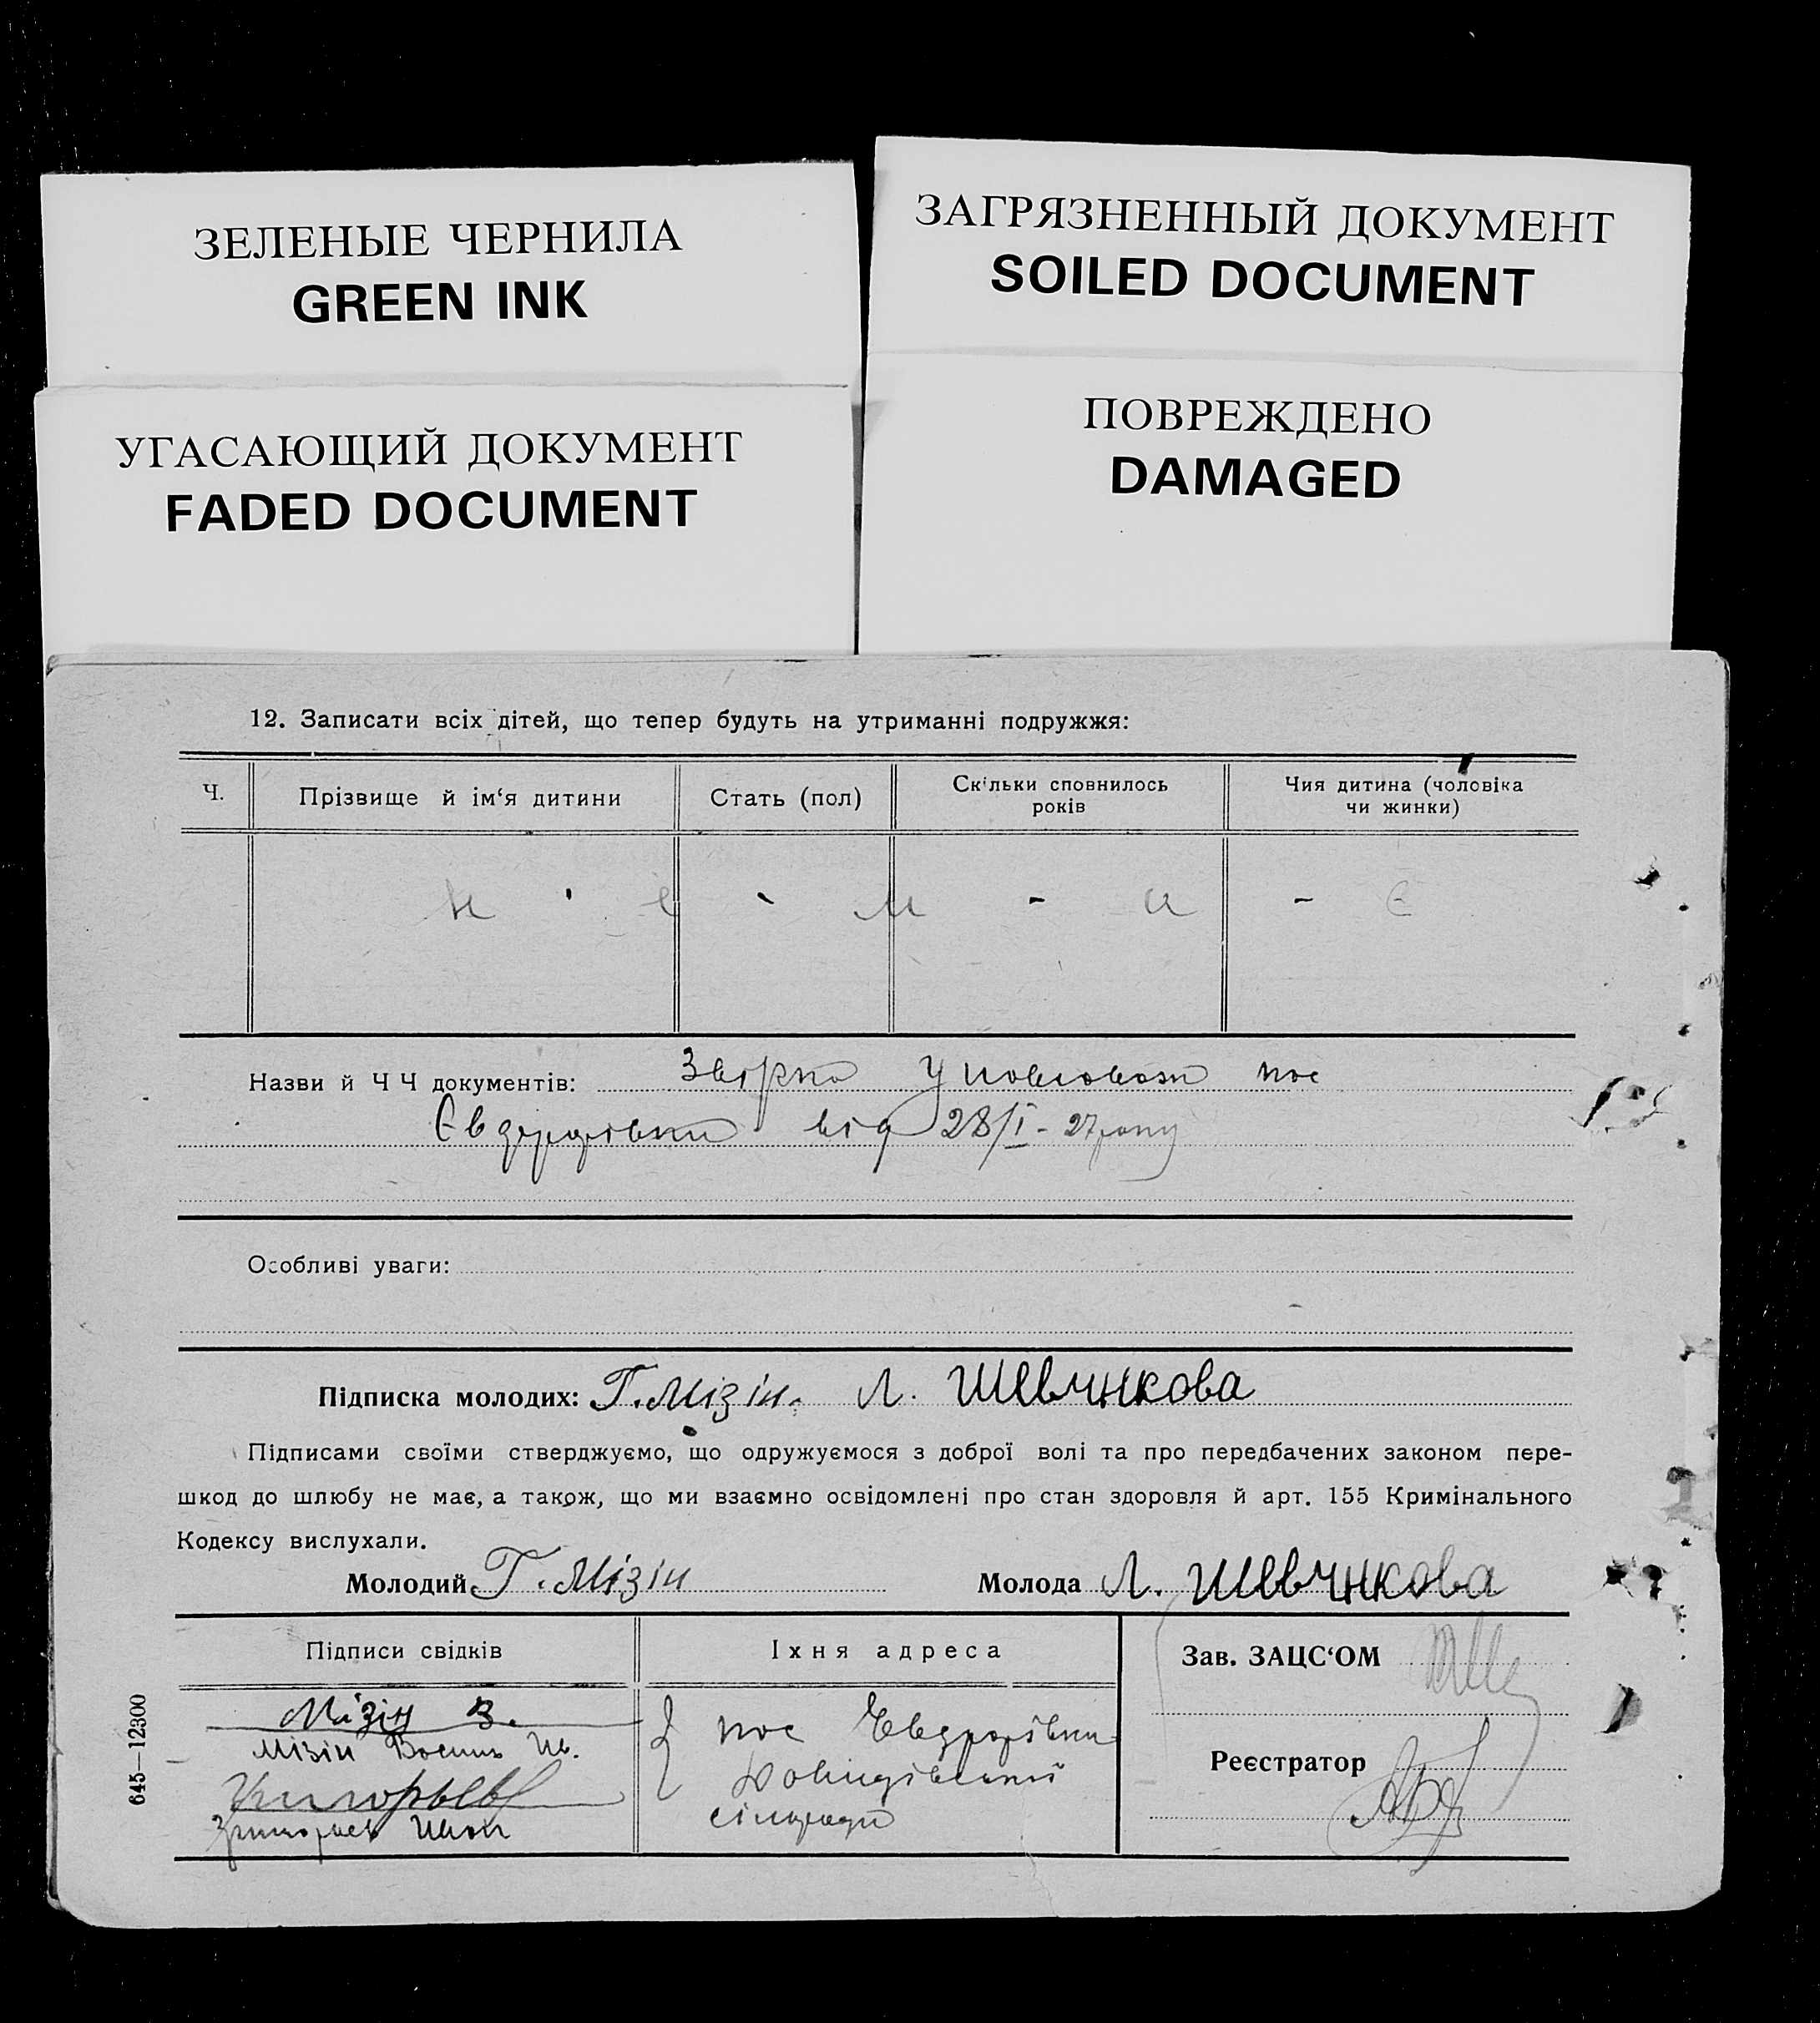 ЗЕЛЕНЫЕ ЧЕРНИЛА
GREEN INK
ЗАГРЯЗНЕННЫЙ ДОКУМЕНТ
SOILED DOCUMENT
УГАСАЮЩИЙ ДОКУМЕНТ
FADED DOCUMENT
ПОВРЕЖДЕНО
DAMAGED
12. Записати всіх дітей, що тепер будуть на утриманні подружжя:
Ч.
Прізвище й ім‘я дитини
Стать (пол)
Скільки сповнилось
років
Чия дитина (чоловіка
чи жинки)
н - е - м - а - є
Назви й Ч Ч документів: пос
від 28/I - 27 року
Особливі уваги:
Підписка молодих: Г. Мізін. Л. Шевчнкова
Підписами своїми стверджуємо, що одружуємося з доброї волі та про передбачених законом пере-
шкод до шлюбу не має, а також, що ми взаємно освідомлені про стан здоровля й арт. 155 Кримінального
Кодексу вислухали.
Молодий Г. Мізін Молода Л. Шевчнкова
Підписи свідків
Іхня адреса
Зав. ЗАЦС‘ОМ
Мізін В.
Мізін Ив.
пос
сільради
Реєстратор
645—12300